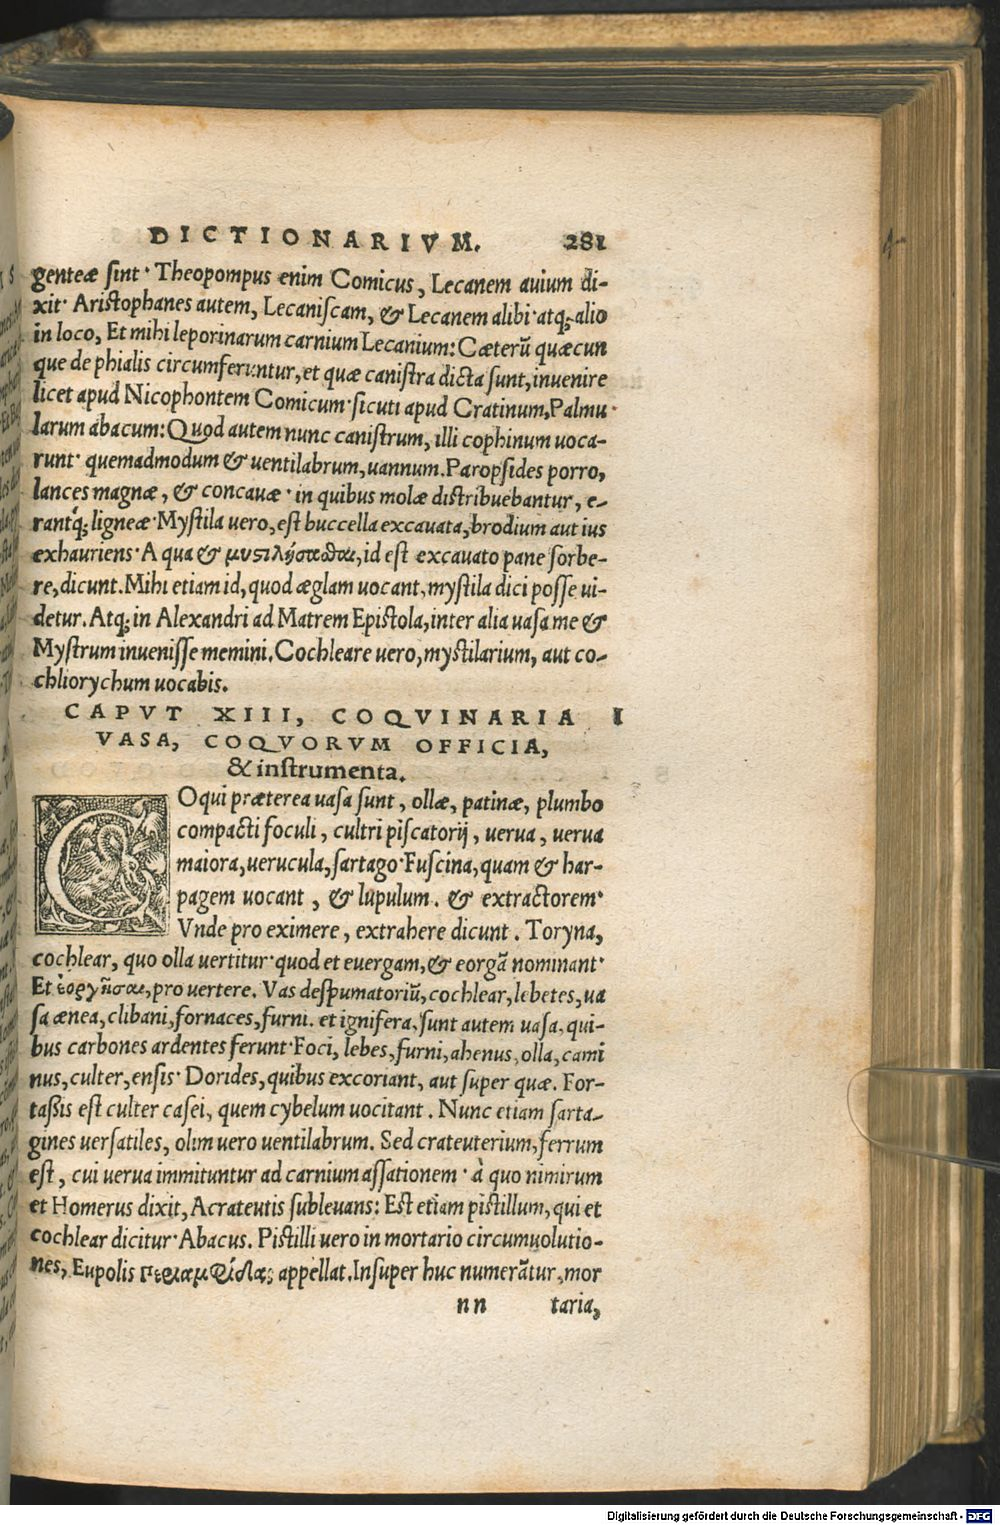 DICTIONARIVM. 281
genteæ sint· Theopompus enim Comicus, Lecanem auium di-
xit· Aristophanes autem, Lecaniscam, & Lecanem alibi·atq; alio
in loco, Et mihi leporinarum carnium Lecanium: Cæterũ quæcun
que de phialis circumferuntur, et quæ canistra dicta sunt, inuenire
licet apud Nicophontem Comicum·sicuti apud Cratinum, Palmu·
larum abacum: Quod autem nunc canistrum, illi cophinum uoca-
runt· quemadmodum & uentilabrum, uannum. Paropsides porro,
lances magnæ, & concauæ· in quibus molæ distribuebantur, e-
rantq́; ligneæ· Mystila uero, est buccella excauata, brodium aut ius
exhauriens· A qua & μυστιλήσασθαι, id est excauato pane sorbe-
re, dicunt. Mihi etiam id, quod æglam uocant, mystila dici posse ui-
detur. Atq; in Alexandri ad Matrem Epistola, inter alia uasa me &
Mystrum inuenisse memini. Cochleare uero, mystilarium, aut co-
chliorychum uocabis.
CAPVT XIII, COQVINARIA I
VASA, COQVORVM OFFICIA,
& instrumenta.
COqui præterea uasa sunt, ollæ, patinæ, plumbo
compacti foculi, cultri piscatorij, uerua, uerua
maiora, uerucula, sartago· Fuscina, quam & har-
pagem uocant, & lupulum. & extractorem·
Vnde pro eximere, extrahere dicunt. Toryna,
cochlear, quo olla uertitur· quod et euergam, & eorgã nominant·
Et ἑοργῆσαι, pro uertere. Vas despumatoriũ, cochlear, lebetes, ua
sa ænea, clibani, fornaces, furni. et ignifera, sunt autem uasa, qui-
bus carbones ardentes ferunt· Foci, lebes, furni, ahenus, olla, cami
nus, culter, ensis· Dorides, quibus excoriant, aut super quæ. For-
taßis est culter casei, quem cybelum uocitant. Nunc etiam sarta-
gines uersatiles, olim uero uentilabrum. Sed crateuterium, ferrum
est, cui uerua immituntur ad carnium assationem· à quo nimirum
et Homerus dixit, Acrateutis subleuans: Est etiam pistillum, qui et
cochlear dicitur· Abacus. Pistilli uero in mortario circumuolutio-
nes, Eupolis appellat. Insuper huc numerãtur, mor
nn taria,
Digitalisierung gefördert durch die Deutsche Forschungsgemeinschaft - DFG